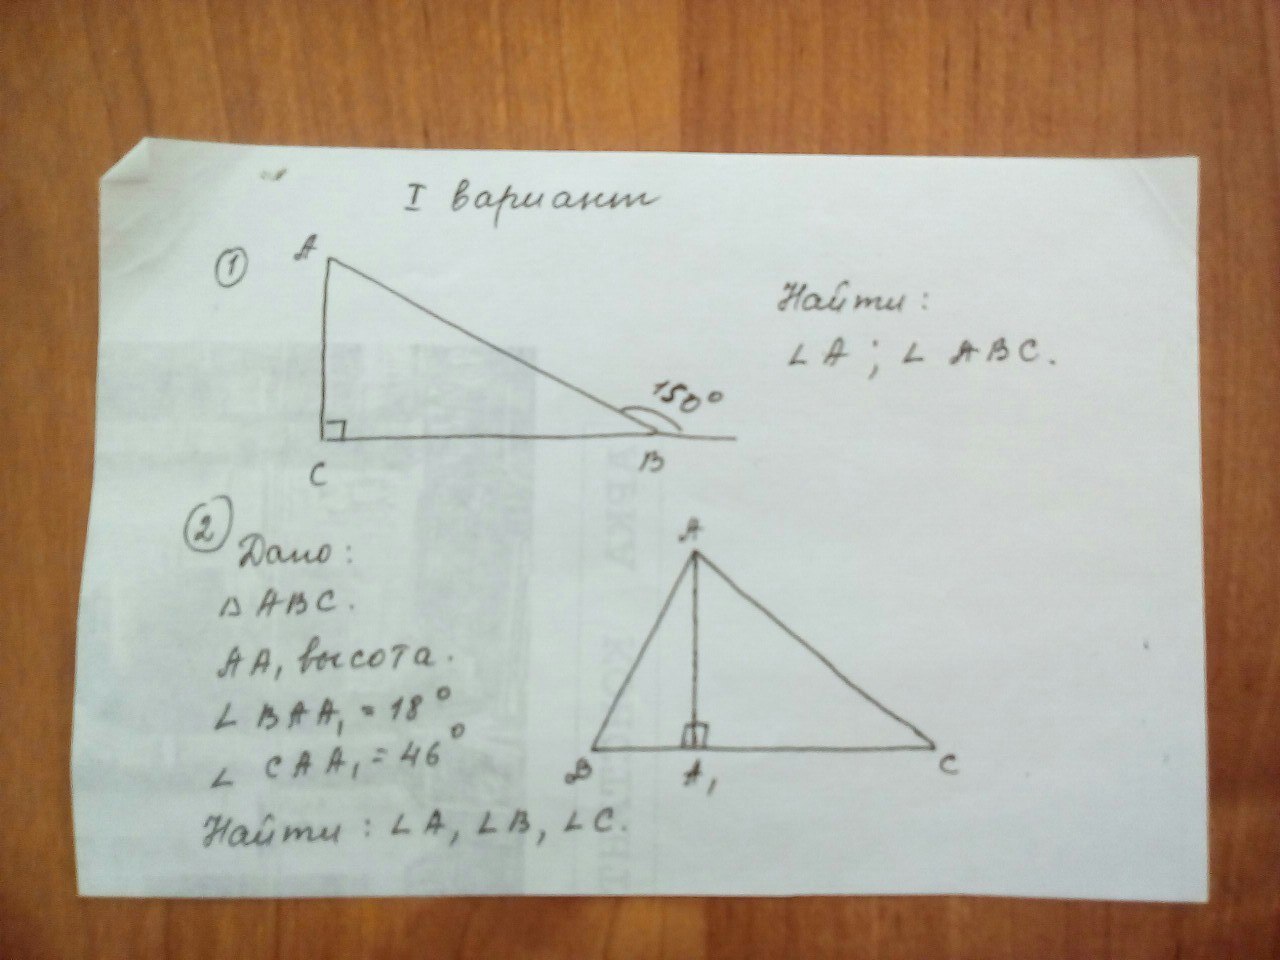 I вариант
①
A
C
B
150°
Найти:
∠A; ∠ABC.
②
Дано:
△ABC.
AA₁ высота.
∠BAA₁ = 18°
∠CAA₁ = 46°
Найти: ∠A, ∠B, ∠C.
A
B
A₁
C